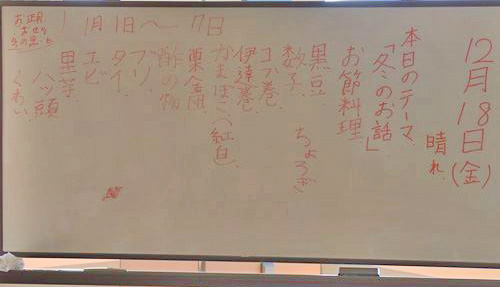 12月18日(金)
晴れ
本日のテーマ
「冬のお話」
お節料理
黒豆 ちょろぎ
数の子
コブ巻
伊達巻
かまぼこ(紅白)
栗金団
酢の物
ブリ
タイ
エビ
里芋
八ッ頭
くわい
1月1日〜7日
お正月